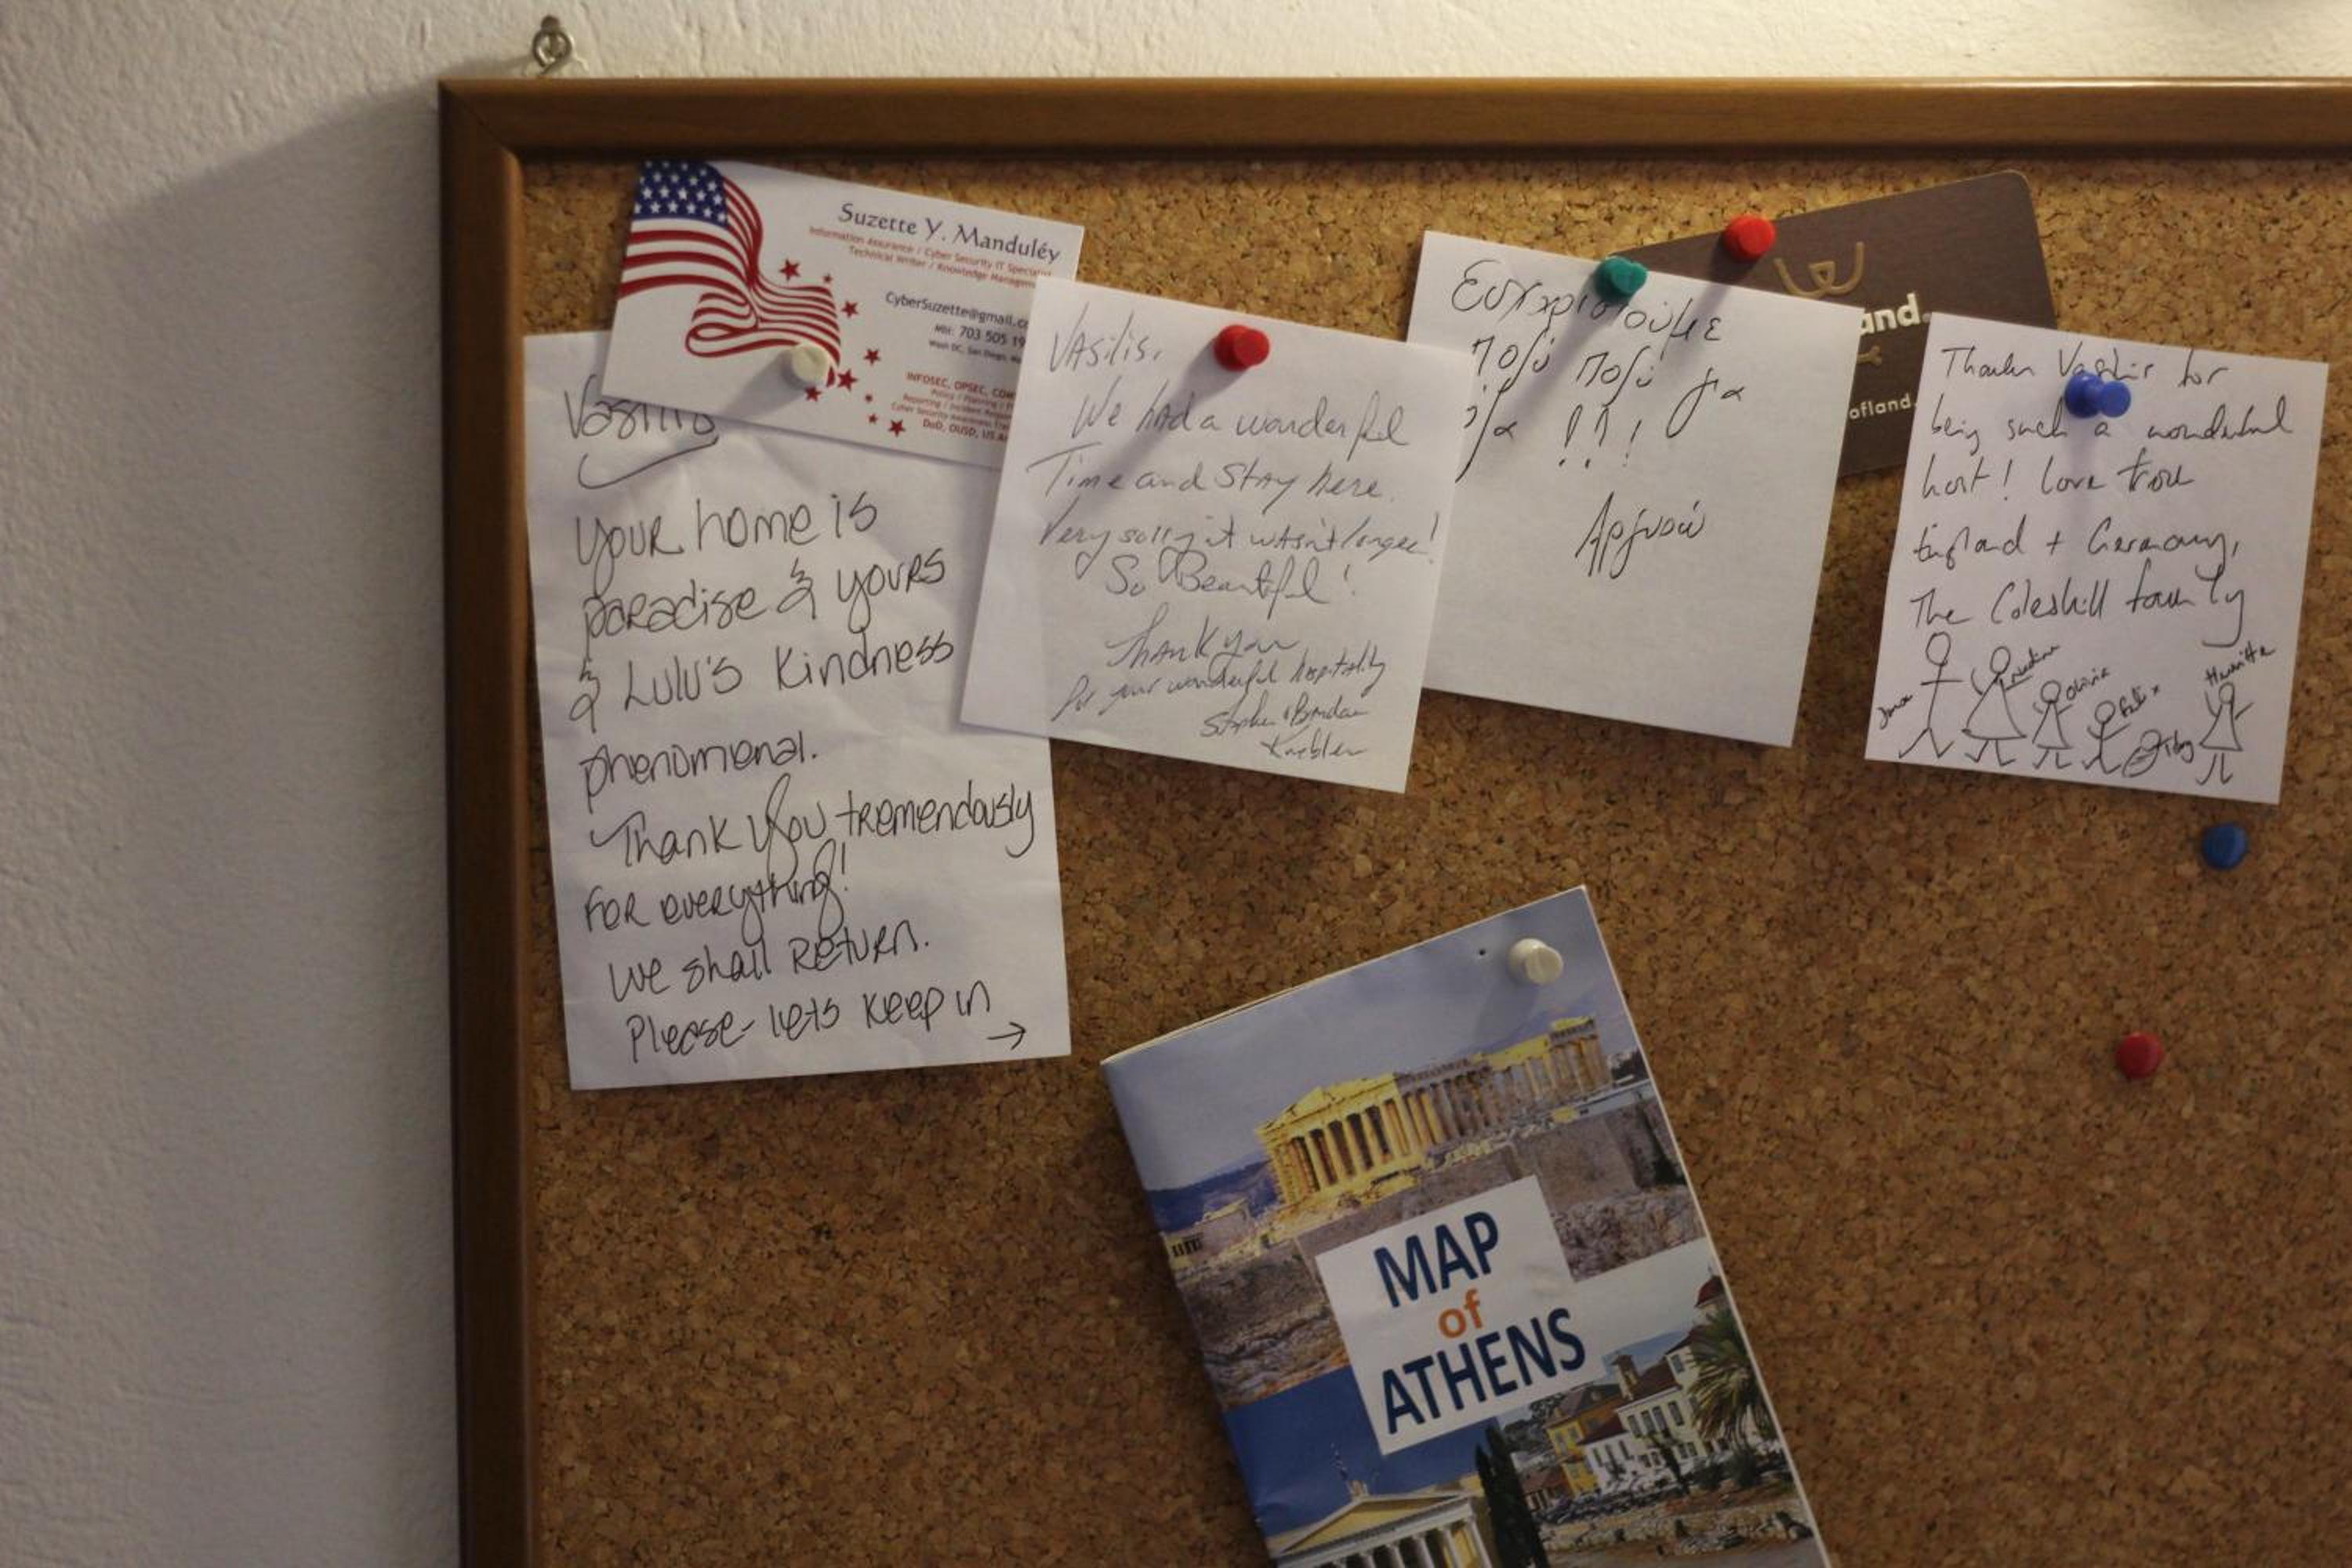 Suzette Y. Manduléy
Information Assurance / Cyber Security IT Specialist
Technical Writer / Knowledge Managem
CyberSuzette@gmail.c
703 505 19
Wash DC, San Diego,
INFOSEC, OPSEC, COM
Policy / Planning /
Reporting / Incident Respon
Cyber Security Awareness
DoD, OUSD, US
Vasilis
Your home is
paradise & yours
& Lulu's Kindness
phenomenal.
Thank you tremendously
for everything!
We shall Return.
Please - lets keep in
→
Vasilis,
We had a wonderful
Time and Stay here.
Very sorry it wasn't longer!
So Beautiful!
Thank you
for your wonderful hospitality
Ευχαριστούμε
πολύ πολύ για
όλα !!!
Αργυρώ
and.
ofland.
Thanks for
being such a wonderful
host! Love from
England + Germany,
The Coleshill family
Nadine
Olivia
Felix
Toby
MAP
of
ATHENS